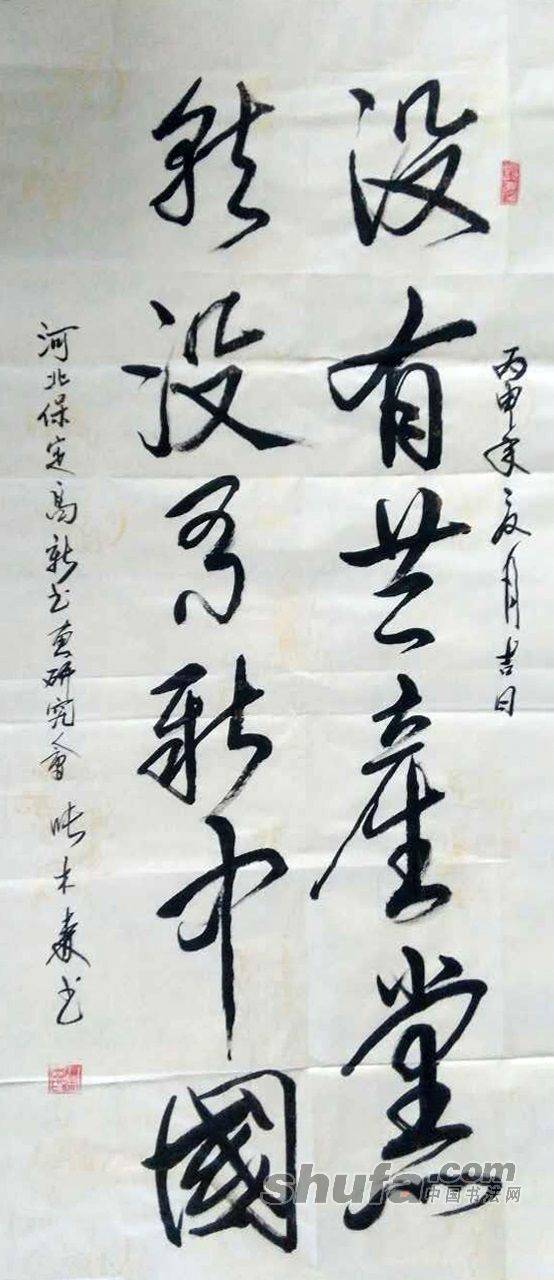 丙申年夏月吉日
没有共產黨
就没有新中國
河北保定高新书画研究會
木森书
shufa.com
中国书法网